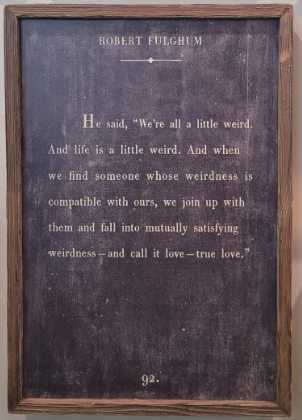 ROBERT FULGHUM
He said, “We’re all a little weird.
And life is a little weird. And when
we find someone whose weirdness is
compatible with ours, we join up with
them and fall into mutually satisfying
weirdness—and call it love—true love.”
92.